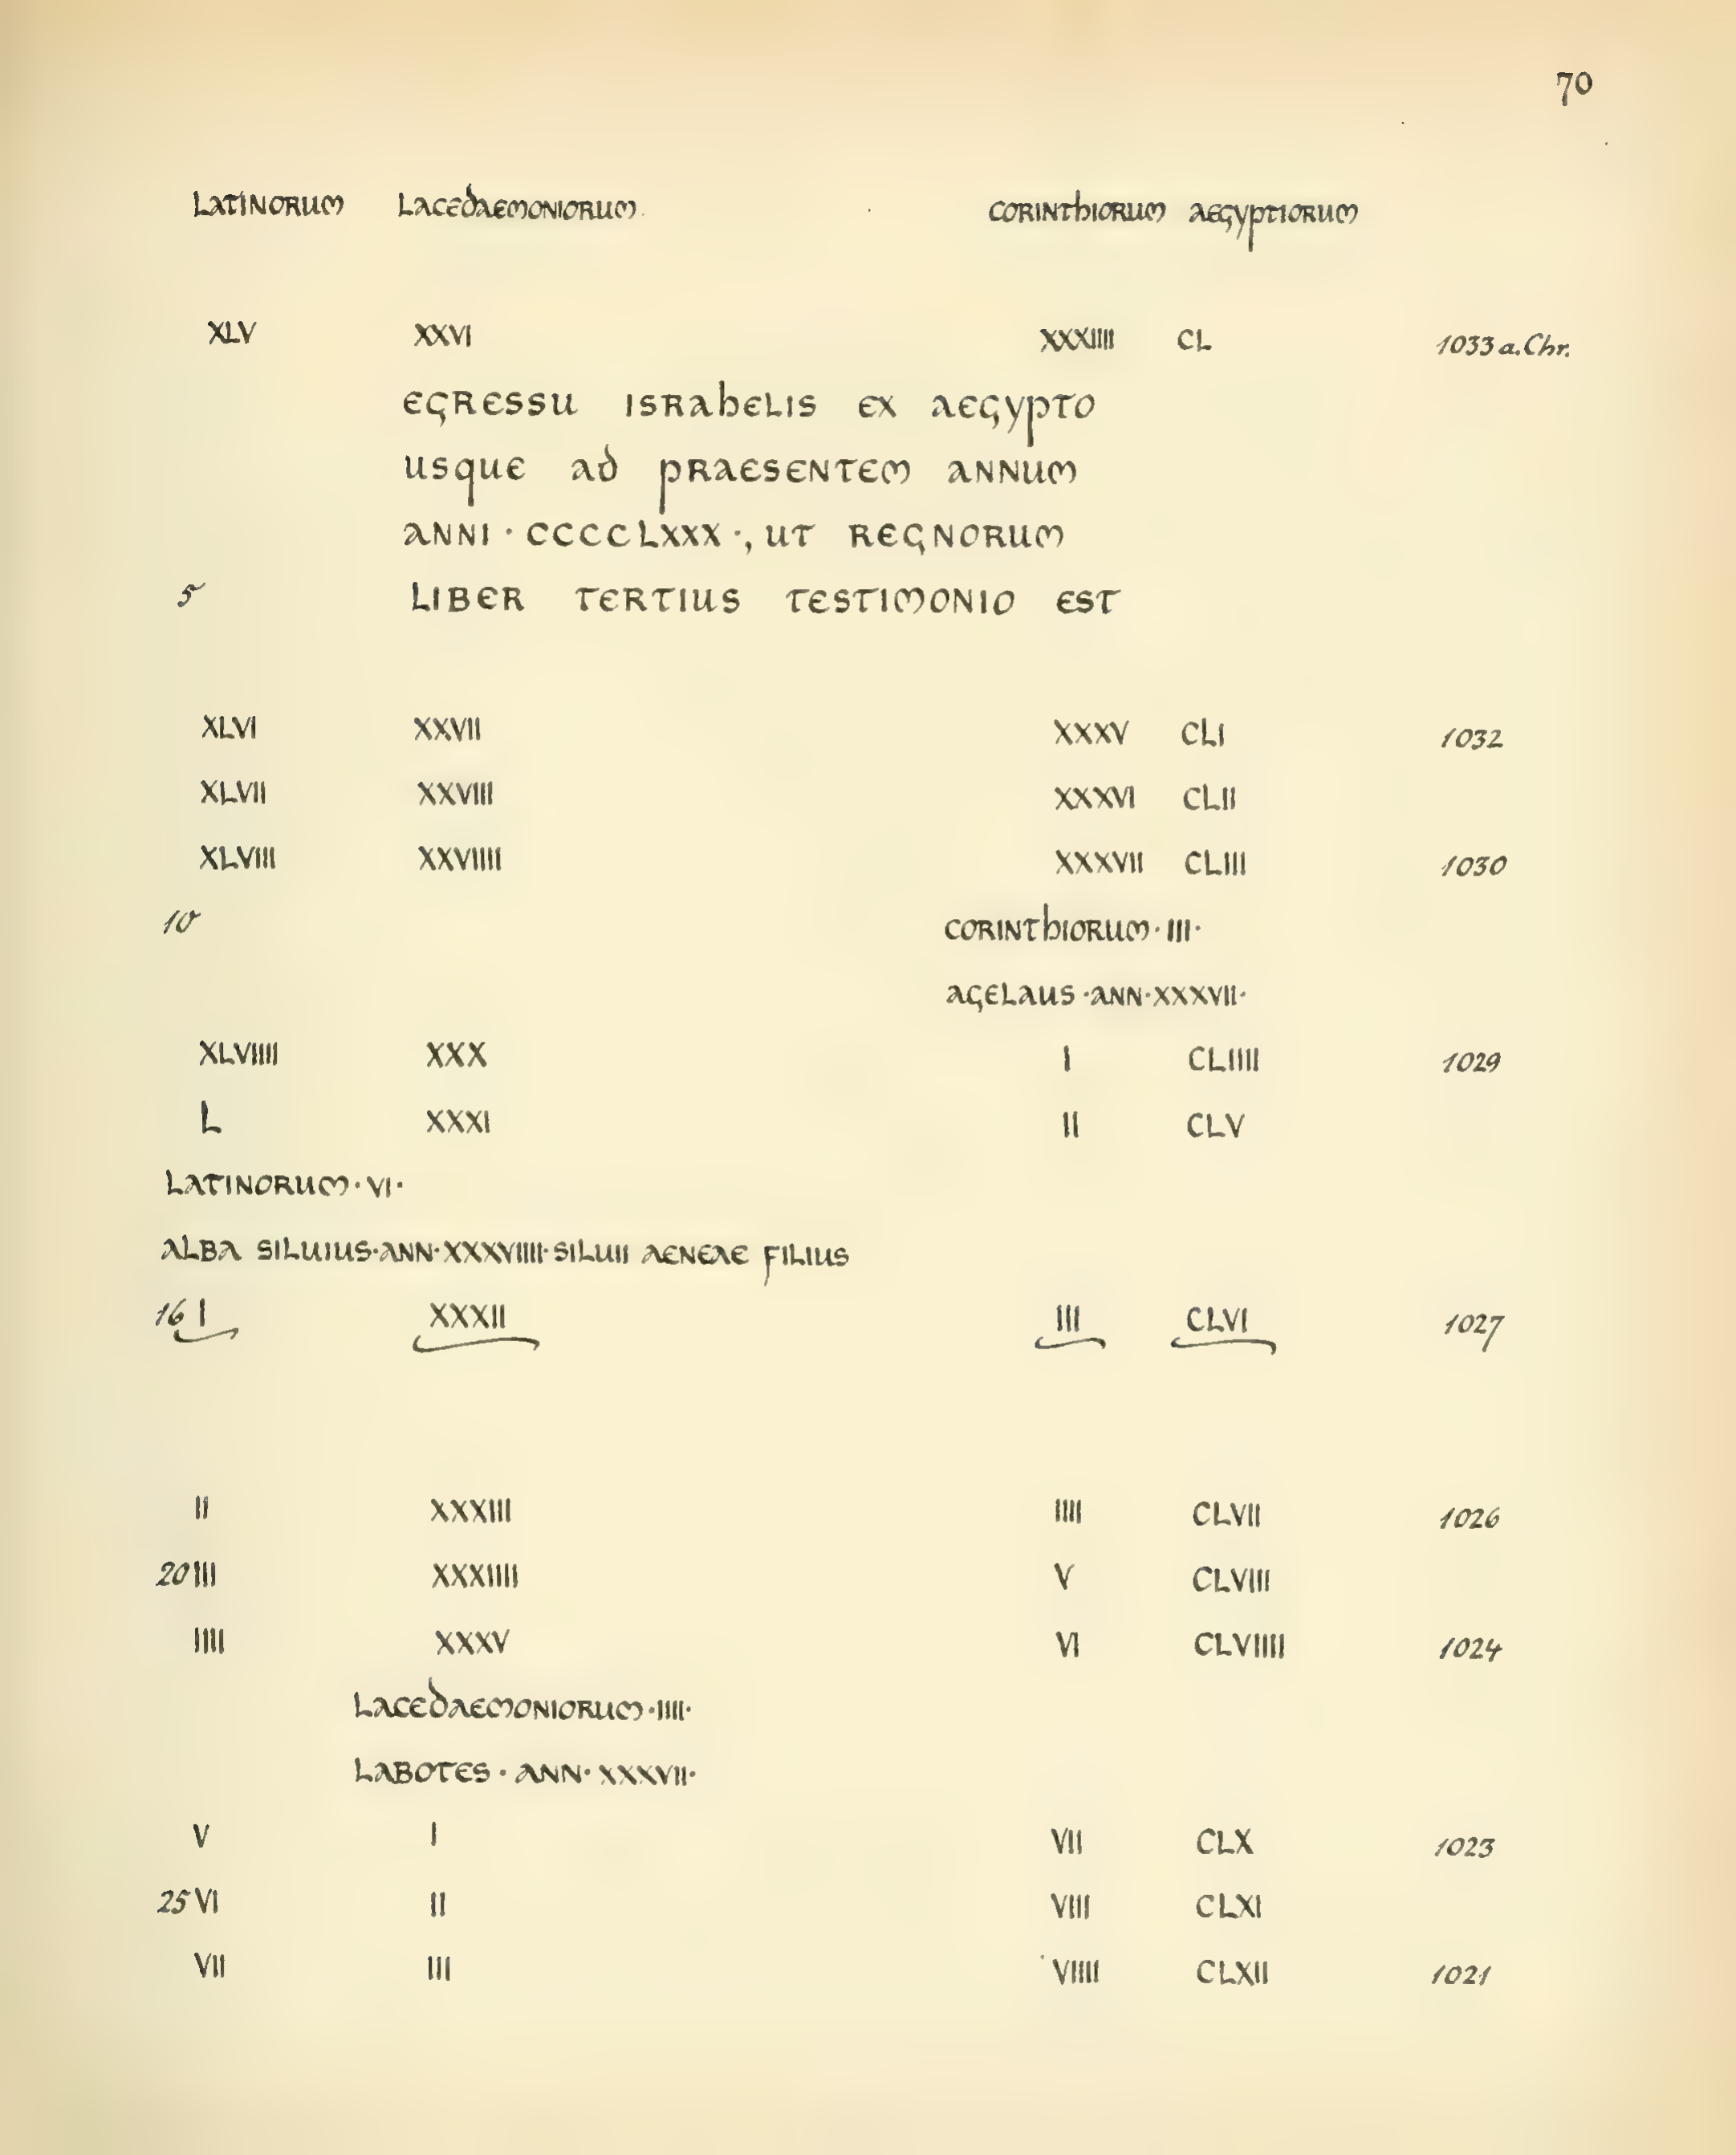 70
LATINORUM LACEDAEMONIORUM CORINTHIORUM AEGYPTIORUM
XLV XXVI XXXIIII CL 1033 a. Chr.
EGRESSU ISRAHELIS EX AEGYPTO
USQUE AD PRAESENTEM ANNUM
ANNI · CCCCLXXX ·, UT REGNORUM
5 LIBER TERTIUS TESTIMONIO EST
XLVI XXVII XXXV CLI 1032
XLVII XXVIII XXXVI CLII
XLVIII XXVIIII XXXVII CLIII 1030
10 CORINTHIORUM · III ·
AGELAUS · ANN · XXXVII ·
XLVIIII XXX I CLIIII 1029
L XXXI II CLV
LATINORUM · VI ·
ALBA SILUIUS · ANN · XXXVIIII · SILUII AENEAE FILIUS
16 I XXXII III CLVI 1027
II XXXIII IIII CLVII 1026
20 III XXXIIII V CLVIII
IIII XXXV VI CLVIIII 1024
LACEDAEMONIORUM · IIII ·
LABOTES · ANN · XXXVII ·
V I VII CLX 1023
25 VI II VIII CLXI
VII III VIIII CLXII 1021